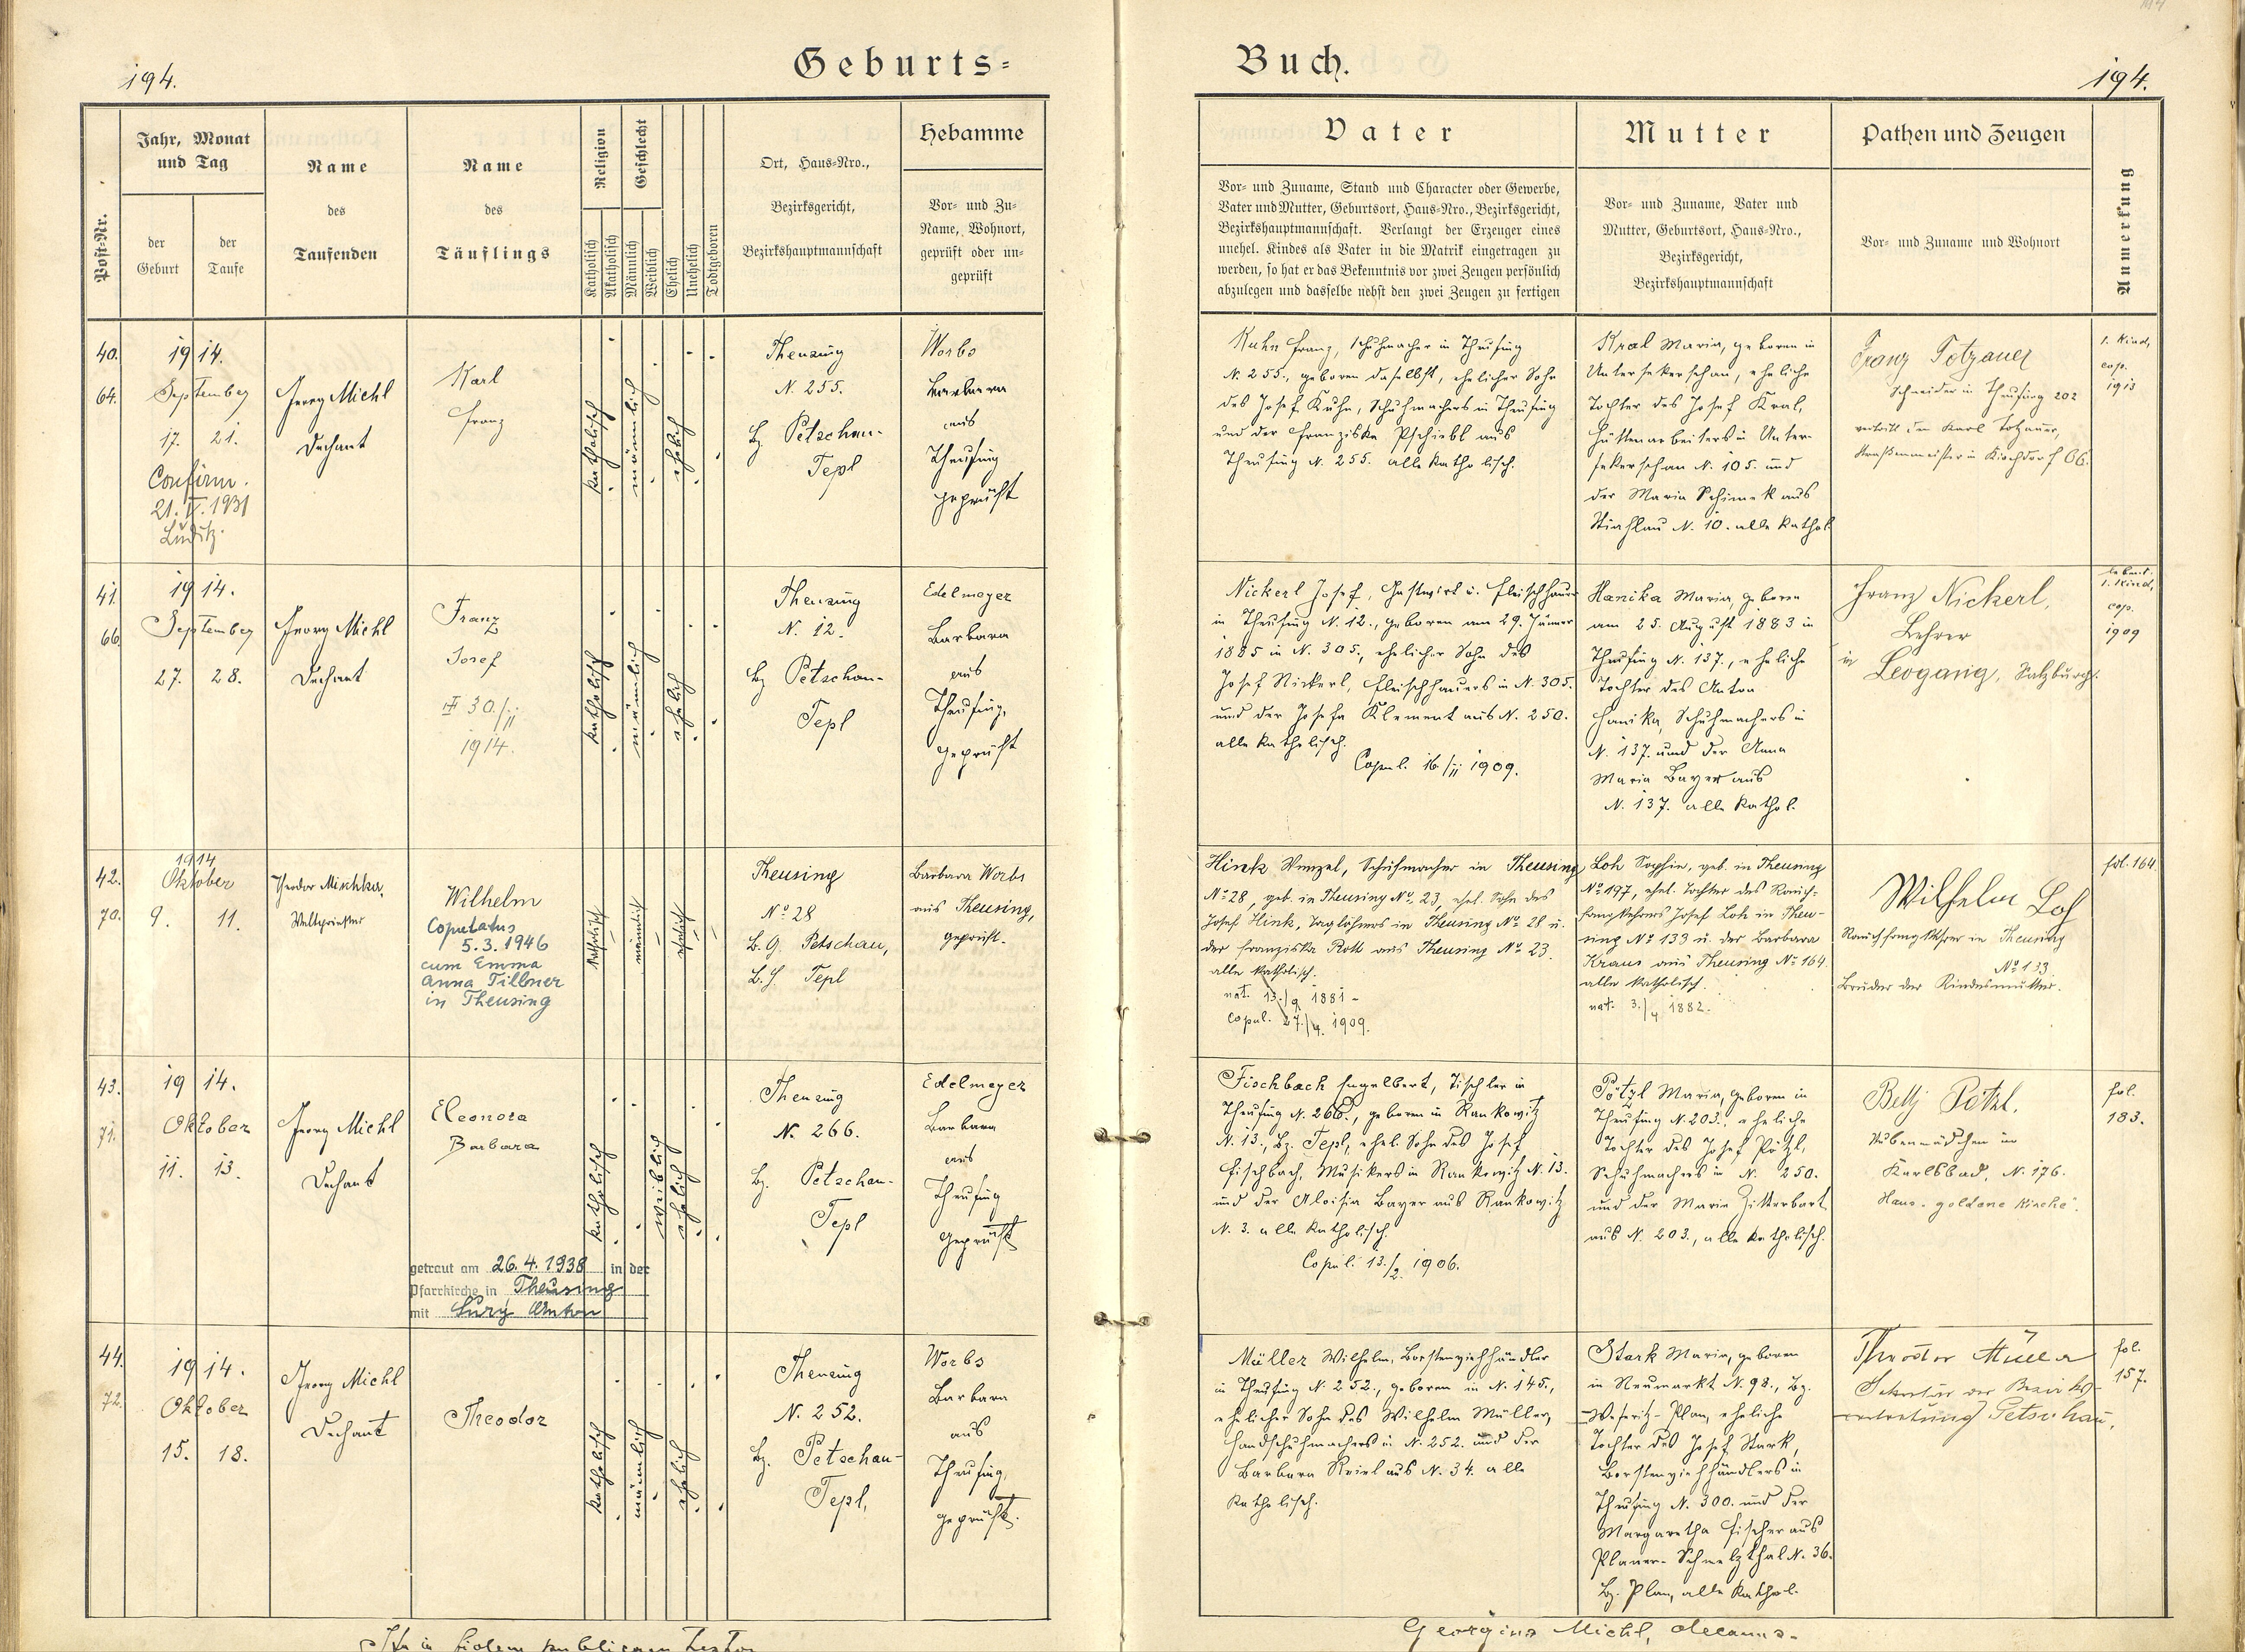 194.
Geburts=
Post-Nr.
Jahr, Monat
und Tag
der
Geburt
der
Taufe
Name
des
Taufenden
Name
des
Täuflings
Religion
Katholisch
Akatholisch
Geschlecht
Männlich
Weiblich
Ehelich
Unehelich
Todtgeboren
Ort, Haus=Nro.,
Bezirksgericht,
Bezirkshauptmannschaft
Hebamme
Vor= und Zu=
Name, Wohnort,
geprüft oder un=
geprüft
40.
64.
1914.
September
17. 21.
Confirm.
21.V.1931
Luditz.
Georg Michl
Dechant
Karl
Franz
katholisch
männlich
ehelich
Theusing
N. 255.
Bz. Petschau-
Tepl
Worbs
Barbara
aus
Theusing
geprüft
41.
66.
1914.
September
27. 28.
Georg Michl
Dechant
Franz
Josef
30./11
1914.
katholisch
männlich
ehelich
Theusing
N. 12.
Bz. Petschau-
Tepl
Edelmayer
Barbara
aus
Theusing,
geprüft
42.
70.
1914
Oktober
9. 11.
Theodor Mischka,
Weltpriester
Wilhelm
Copulatus
5.3.1946
cum Emma
Anna Tillner
in Theusing
katholisch
männlich
ehelich
Theusing
No 28
B.G. Petschau,
B.H. Tepl
Barbara Worbs
aus Theusing,
geprüft.
43.
71.
1914.
Oktober
11. 13.
Georg Michl
Dechant
Eleonora
Barbara
getraut am 26.4.1938 in der
Pfarrkirche in Theusing
mit Lury Anton
katholisch
weiblich
ehelich
Theusing
N. 266.
Bz. Petschau-
Tepl
Edelmayer
Barbara
aus
Theusing
geprüft
44.
72.
1914.
Oktober
15. 18.
Georg Michl
Dechant
Theodor
katholisch
männlich
ehelich
Theusing
N. 252.
Bz. Petschau-
Tepl,
Worbs
Barbara
aus
Theusing,
geprüft.
Ita in fidem publicam testor
Buch.
194.
Vater
Vor= und Zuname, Stand und Character oder Gewerbe,
Vater und Mutter, Geburtsort, Haus=Nro., Bezirksgericht,
Bezirkshauptmannschaft. Verlangt der Erzeuger eines
unehel. Kindes als Vater in die Matrik eingetragen zu
werden, so hat er das Bekenntnis vor zwei Zeugen persönlich
abzulegen und dasselbe nebst den zwei Zeugen zu fertigen
Mutter
Vor= und Zuname, Vater und
Mutter, Geburtsort, Haus=Nro.,
Bezirksgericht,
Bezirkshauptmannschaft
Pathen und Zeugen
Vor= und Zuname und Wohnort
Anmerkung
Kuhn Franz, Schuhmacher in Theusing
N. 255., geboren daselbst, ehelicher Sohn
des Josef Kuhn, Schuhmachers in Theusing
und der Franziska Pschiebl aus
Theusing N. 255. alle katholisch.
Kral Maria, geboren in
Untersekerschan, eheliche
Tochter des Josef Kral,
Hüttenarbeiters in Unter-
sekerschan N. 105. und
der Maria Schimek aus
Stiahlau N. 10. alle kathol.
Franz Totzauer
Schneider in Theusing 202
vertritt den Karl Totzauer,
Straßenmeister in Kirchdorf 66.
1. Kind,
cop.
1913
Nickerl Josef, Gastwirt u. Fleischhauer
in Theusing N. 12., geboren am 29. Jänner
1885 in N. 305., ehelicher Sohn des
Josef Nickerl, Fleischhauers in N. 305.
und der Josefa Klement aus N. 250.
alle katholisch.
Copul. 16/11 1909.
Hanika Maria, geboren
am 25. August 1883 in
Theusing N. 137., eheliche
Tochter des Anton
Hanika, Schuhmachers in
N. 137. und der Anna
Maria Bayer aus
N. 137. alle kathol.
Franz Nickerl,
Lehrer
in
Leogang, Salzburg.
1. Kind,
cop.
1909
Hink Wenzel, Schuhmacher in Theusing
No 28, geb. in Theusing No. 23, ehel. Sohn des
Josef Hink, Taglöhners in Theusing No 28 u.
der Franziska Rott aus Theusing No 23.
alle katholisch.
nat. 13./9 1881 -
copul. 27./4. 1909.
Loh Sophie, geb. in Theusing
No 197, ehel. Tochter des Rauch-
fangkehrers Josef Loh in Theu-
sing No 133 u. der Barbara
Kraus aus Theusing No 164.
alle katholisch.
nat. 3./4 1882.
Wilhelm Loh
Rauchfangkehrer in Theusing
No 133.
Bruder der Kindesmutter.
fol. 164
Fischbach Engelbert, Tischler in
Theusing N. 266., geboren in Rankowitz
N. 13., Bz. Tepl, ehel. Sohn des Josef
Fischbach, Musikers in Rankowitz N. 13.
und der Aloisia Bayer aus Rankowitz
N. 3. alle katholisch.
Copul. 13./2. 1906.
Pötzl Maria, geboren in
Theusing N. 203., eheliche
Tochter des Josef Pötzl,
Schuhmachers in N. 250.
und der Maria Zitterbart
aus N. 203., alle katholisch.
Betty Pötzl.
Stubenmädchen in
Karlsbad, N. 176.
Haus „goldene Kirche“.
fol.
183.
Müller Wilhelm, Borstenviehhändler
in Theusing N. 252., geboren in N. 145.,
ehelicher Sohn des Wilhelm Müller,
Handschuhmachers in N. 252. und der
Barbara Kriel aus N. 34. alle
katholisch.
Stark Maria, geboren
in Neumarkt N. 98., Bz.
Weseritz-Plan, eheliche
Tochter des Josef Stark,
Borstenviehhändlers in
Theusing N. 300. und der
Margaretha Fischer aus
Planer-Schmelzthal N. 36.
Bz. Plan, alle kathol.
Theodor Müller
Sekretär der Bezirks-
vertretung Petschau,
fol.
157.
Georgius Michl, decanus.